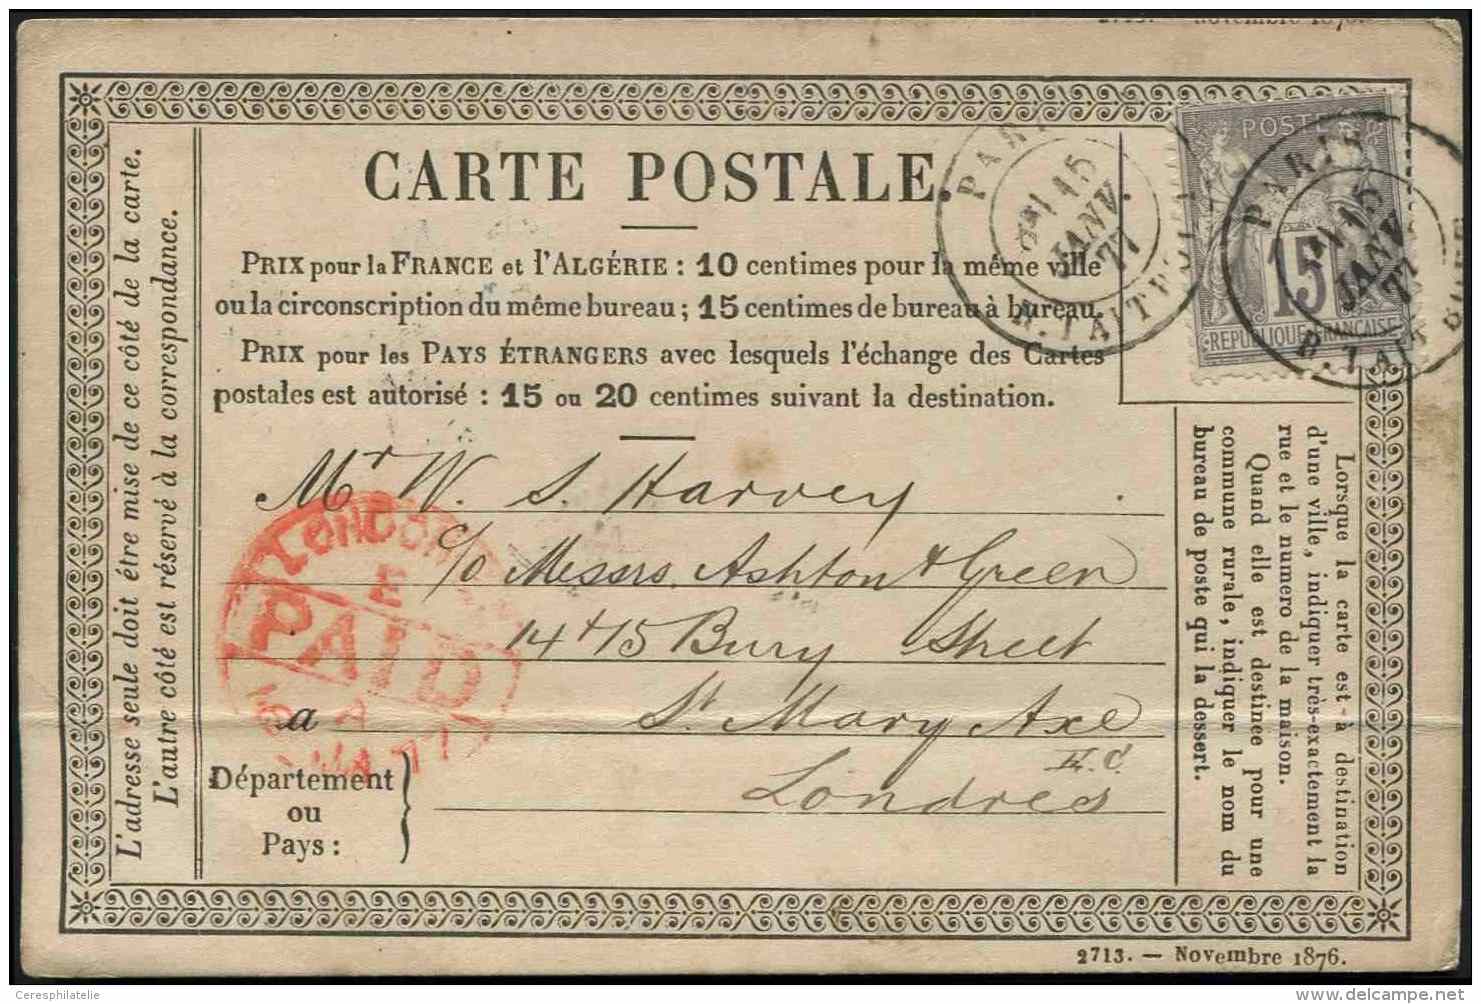 2713. — Novembre 1876.
CARTE POSTALE.
PRIX pour la FRANCE et l'ALGÉRIE : 10 centimes pour la même ville
ou la circonscription du même bureau ; 15 centimes de bureau à bureau.
PRIX pour les PAYS ÉTRANGERS avec lesquels l'échange des Cartes
postales est autorisé : 15 ou 20 centimes suivant la destination.
L'adresse seule doit être mise de ce côté de la carte.
L'autre côté est réservé à la correspondance.
POSTES
15
REPUBLIQUE FRANCAISE
PARIS
15
JANV.
77
R. TAITBOUT
PARIS
15
JANV.
77
R. TAITBOUT
Mr W. S. Harvey
c/o Messrs Ashton & Green
14 & 15 Bury Street
a St Mary Axe
E.C.
Londres
Département
ou
Pays :
LONDON
E
PAID
77
Lorsque la carte est à destination
d'une ville, indiquer très-exactement la
rue et le numéro de la maison.
Quand elle est destinée pour une
commune rurale, indiquer le nom du
bureau de poste qui la dessert.
2713. — Novembre 1876.
Ceresphilatelie
delcampe.net